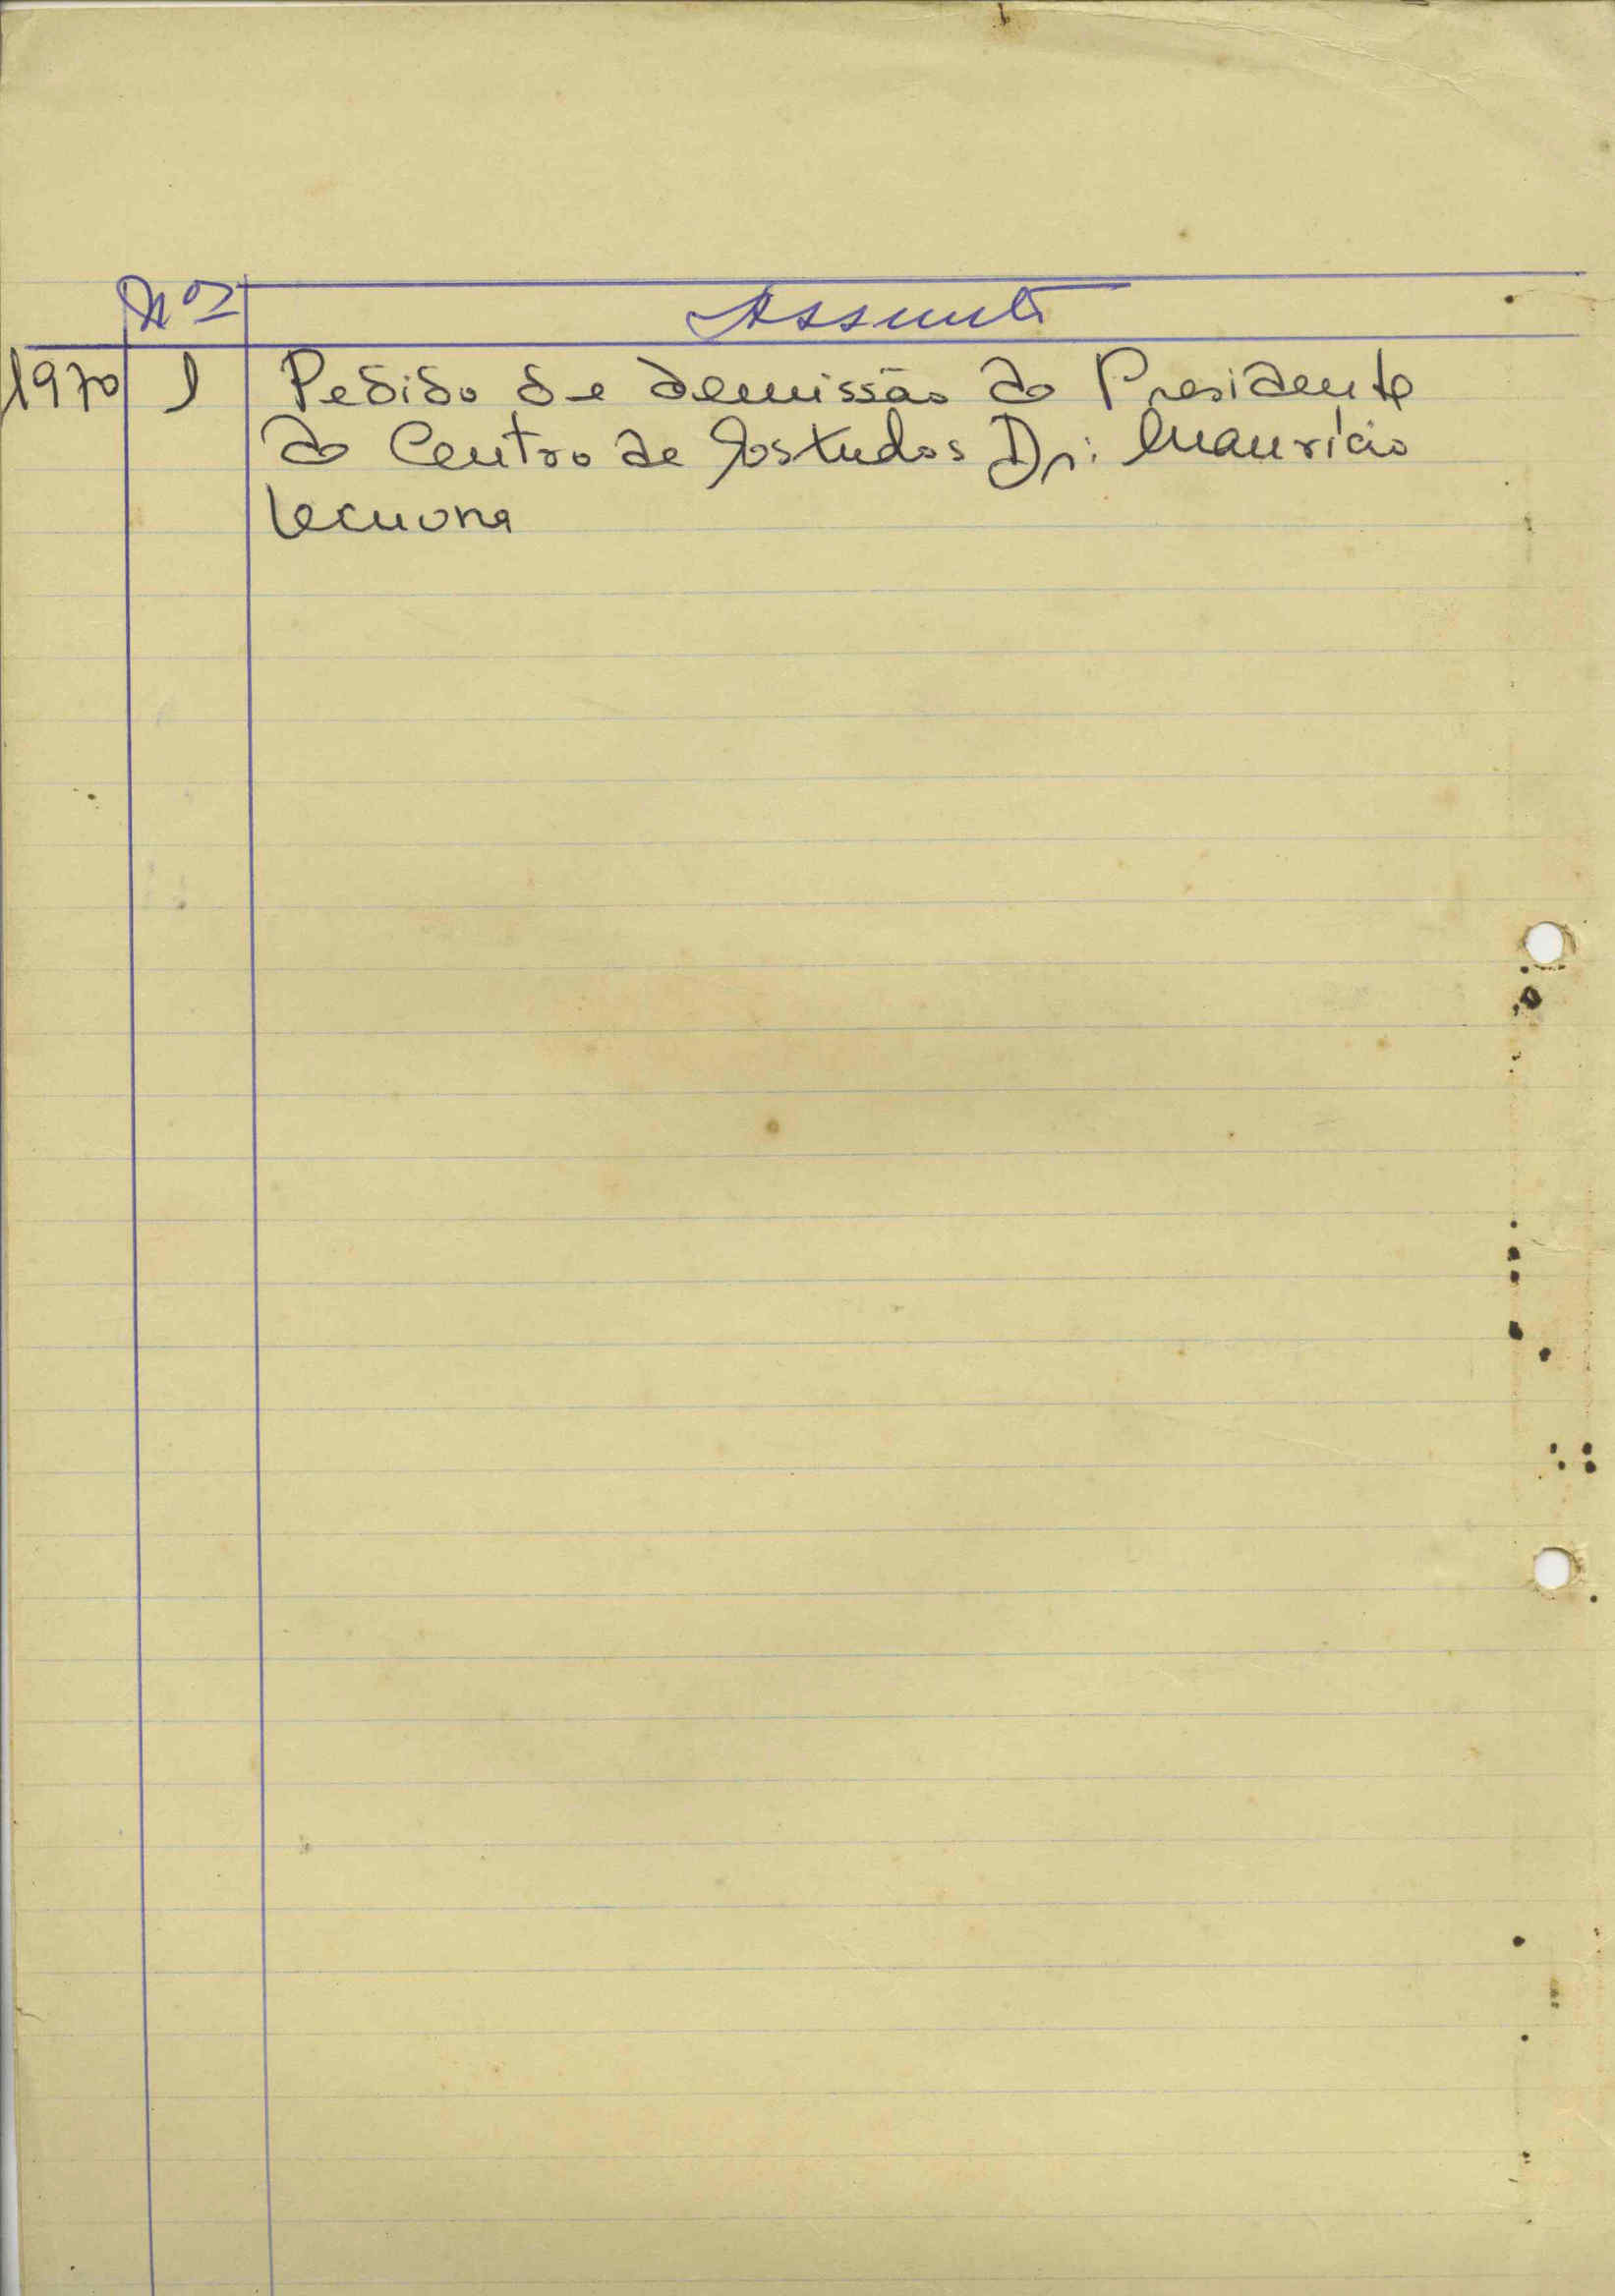 Nº Assunto
1970 1 Pedido de demissão do Presidente
do Centro de Estudos Dr: Maurício
Lecuona